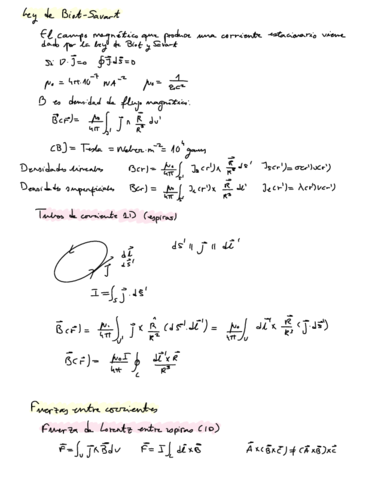 Ley de Biot-Savart
El campo magnético que produce una corriente estacionaria viene
dado por la ley de Biot y Savart
Si ∇·J⃗=0 ∮J⃗ds⃗=0
μ₀ = 4π·10⁻⁷ NA⁻² μ₀ = 1/ε₀c²
B es densidad de flujo magnético:
B⃗(r⃗) = μ₀/4π ∫ᵥ' J⃗ ∧ R⃗/R³ dv'
[B] = Tesla = Weber·m⁻² = 10⁴ gauss
Densidades B(r) = μ₀/4π ∫ Jₛ(r') ∧ R⃗/R³ ds' Jₛ(r') = σ(r')v(r')
Densidades superficiales B(r) = μ₀/4π ∫ (r') × R⃗/R³ dl' (r') = λ(r')v(r')
Tubos de corriente 1D (espiras)
dl⃗
ds⃗'
J⃗
ds' ∥ J⃗ ∥ dl⃗'
I = ∫ₛ J⃗·ds⃗'
B⃗(r⃗) = μ₀/4π ∫ᵥ' J⃗ × R⃗/R³ (ds⃗'·dl⃗') = μ₀/4π ∫ᵥ dl⃗' × R⃗/R³ (J⃗·ds⃗')
B⃗(r⃗) = μ₀I/4π ∮_C dl⃗'×R⃗/R³
Fuerzas entre corrientes
Fuerza de Lorentz entre espiras (1D)
F⃗ = ∫ᵥ J⃗∧B⃗dv F⃗ = I∫_L dl⃗×B⃗ A⃗×(B⃗×C⃗) ≠ (A⃗×B⃗)×C⃗